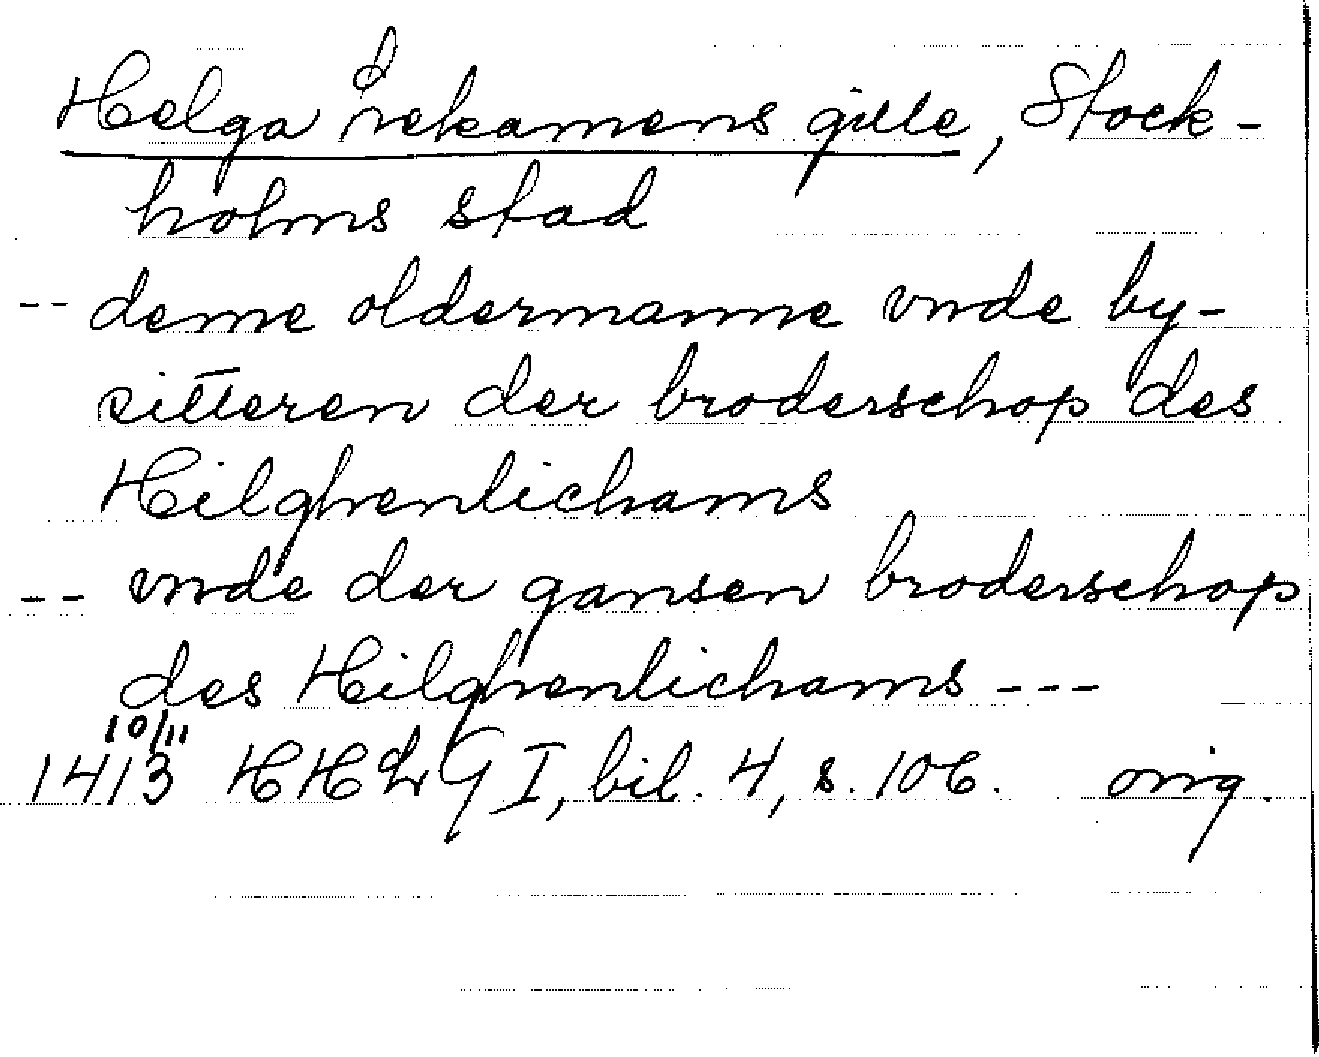 Helga lekamens gille, Stock-
holms stad
-- deme oldermanne vnde by-
sitteren der broderschop des
Hilghenlichams
-- vnde der gansen broderschop
des Hilghenlichams ---
10/11
1413 HHLG I, bil. 4, s. 106. orig.